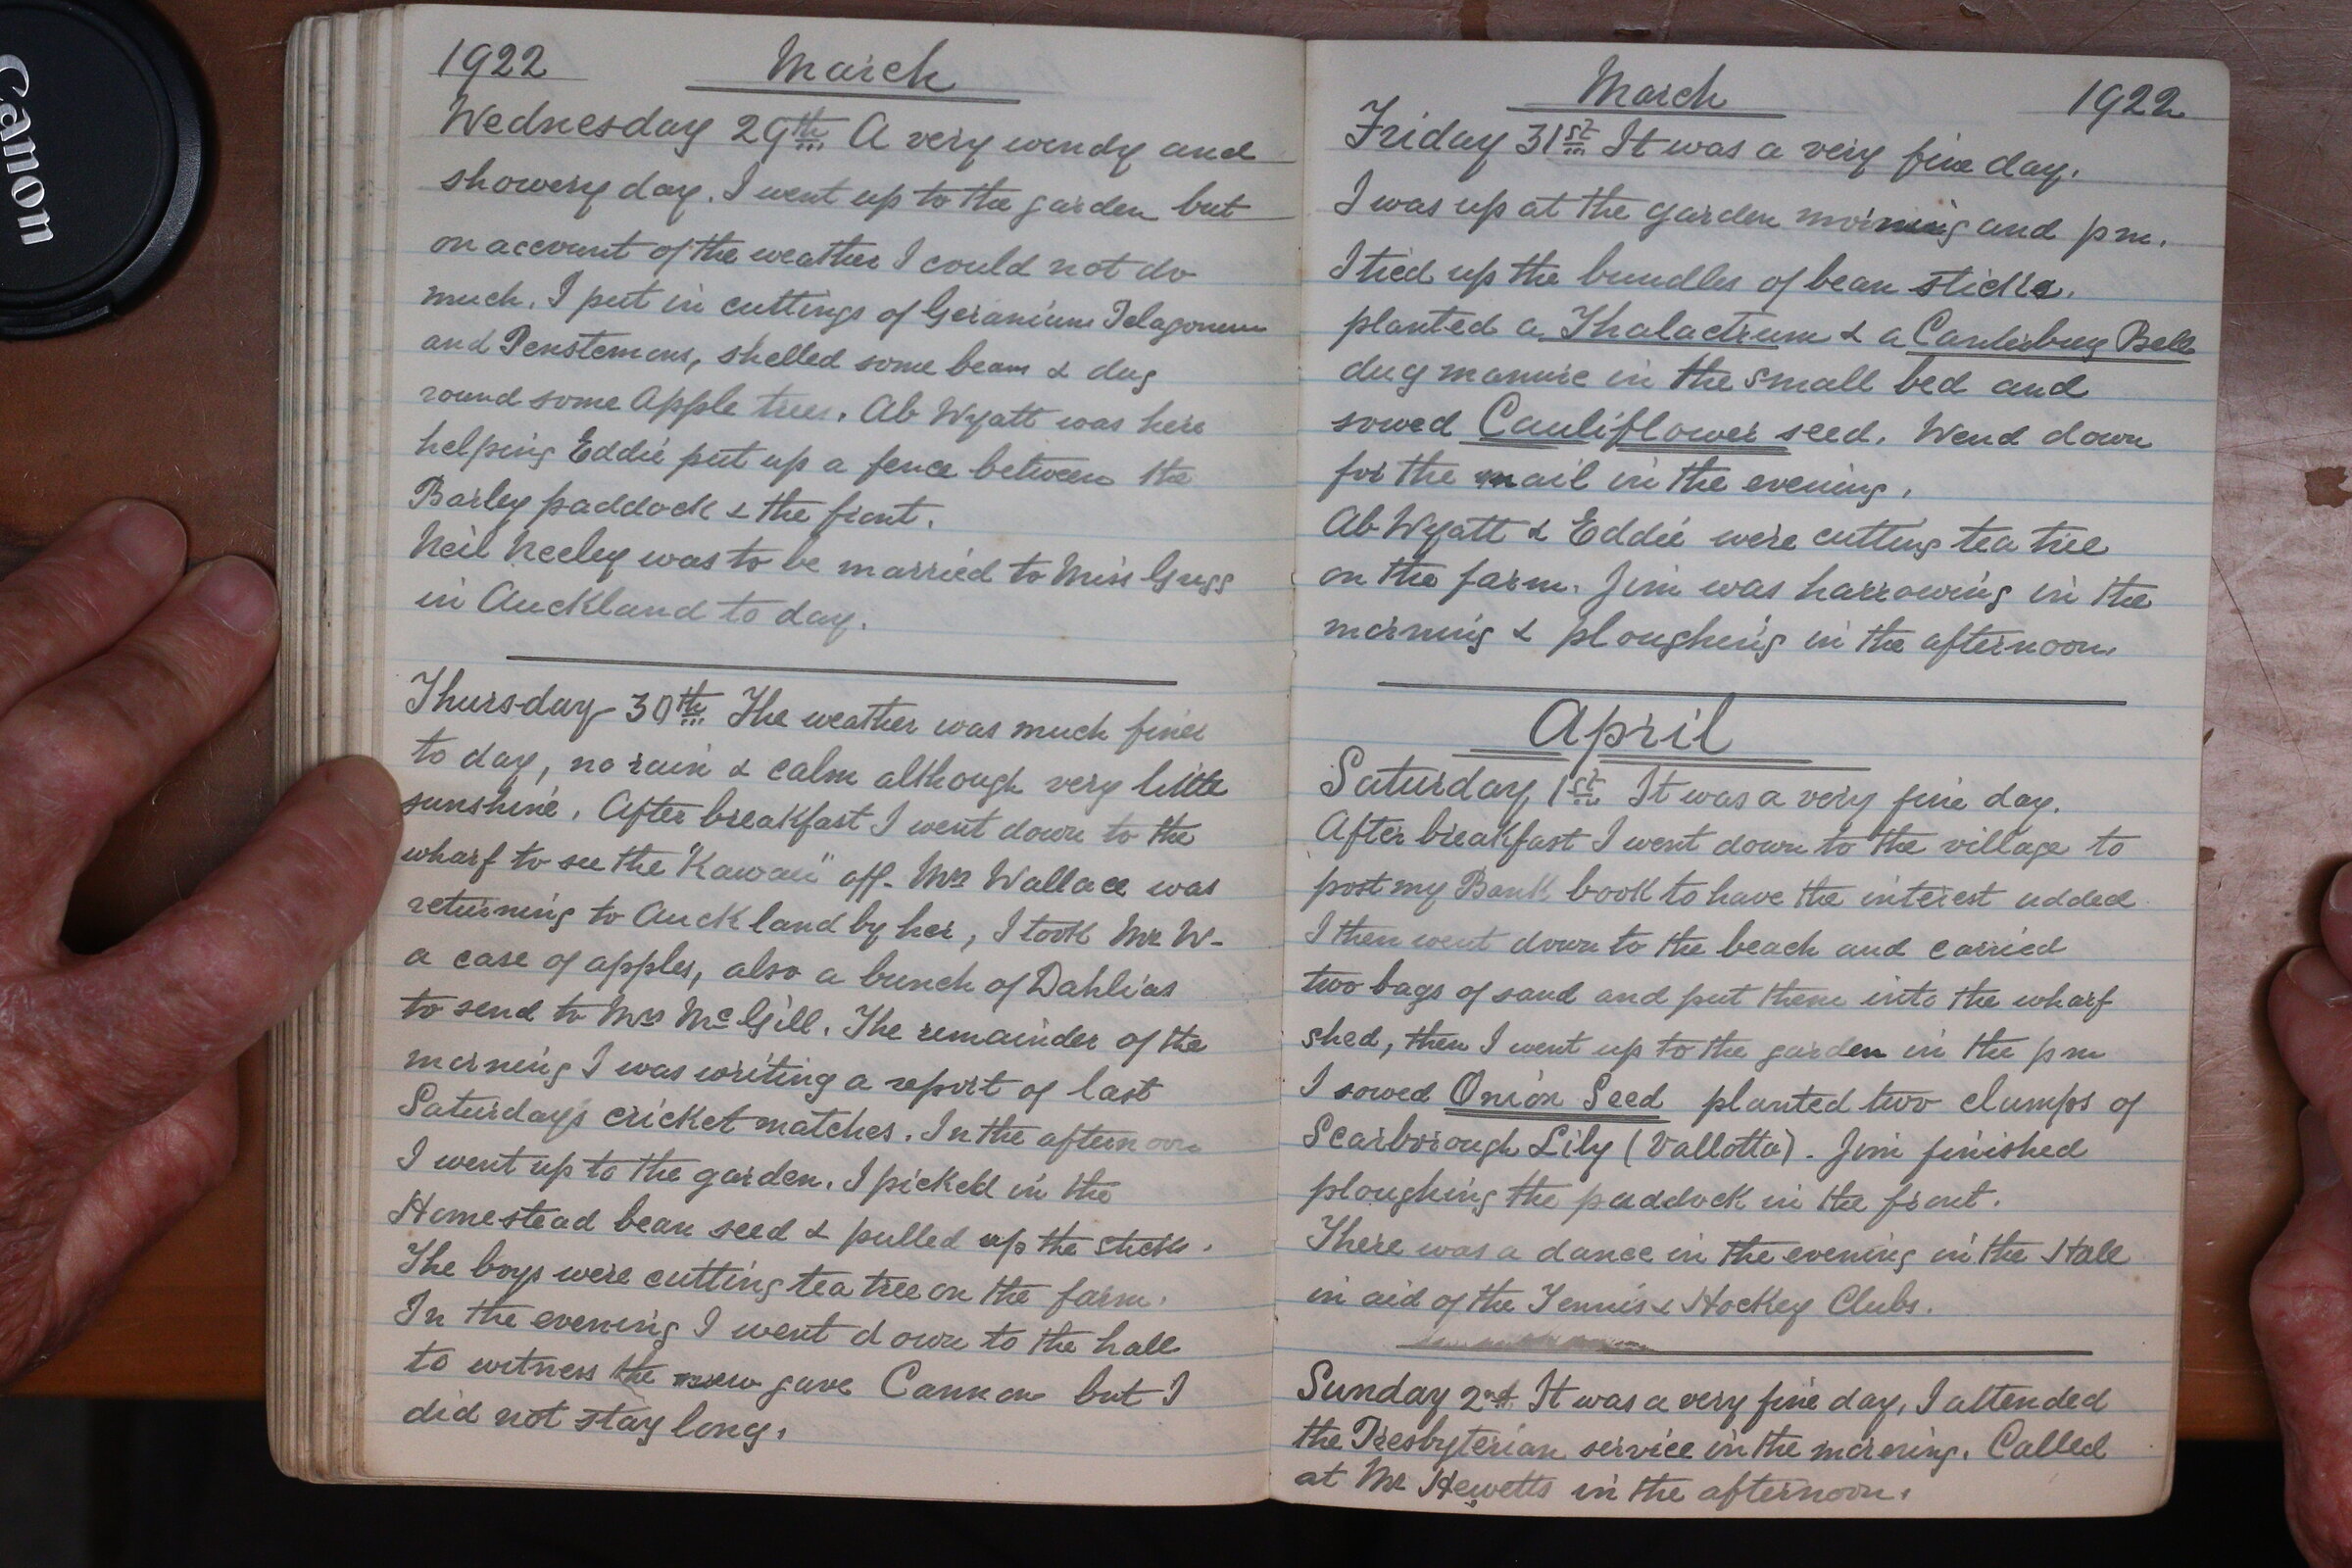 Canon
1922 March
Wednesday 29th A very windy and
showery day. I went up to the garden but
on account of the weather I could not do
much. I put in cuttings of Geranium Pelagonium
and Penstemons, shelled some beans & dug
round some Apple trees. Ab Wyatt was here
helping Eddie put up a fence between the
Barley paddock & the front.
Neil Neeley was to be married to Miss
in Auckland to day.
Thursday 30th The weather was much finer
to day, no rain & calm although very little
sunshine. After breakfast I went down to the
wharf to see the "Kawau" off. Mrs Wallace was
returning to Auckland by her, I took Mr W-
a case of apples, also a bunch of Dahlias
to send to Mrs McGill. The remainder of the
morning I was writing a report of last
Saturdays cricket matches. In the afternoon
I went up to the garden. I picked in the
Homestead bean seed & pulled up the sticks.
The boys were cutting tea tree on the farm.
In the evening I went down to the hall
to witness the gave but I
did not stay long.
March 1922
Friday 31st It was a very fine day.
I was up at the garden morning and pm.
I tied up the bundles of bean sticks.
planted a Thalactrum & a Canterbury Bell
dug manure in the small bed and
sowed Cauliflower seed. Wend down
for the mail in the evening.
Ab Wyatt & Eddie were cutting tea tree
on the farm. Jim was harrowing in the
morning & ploughing in the afternoon.
April
Saturday 1st It was a very fine day.
After breakfast I went down to the village to
post my Bank book to have the interest added
I then went down to the beach and carried
two bags of sand and put them into the wharf
shed, then I went up to the garden in the pm
I sowed Onion Seed planted two clumps of
Scarborough Lily (Vallotta). Jim finished
ploughing the paddock in the front.
There was a dance in the evening in the Hall
in aid of the Tennis & Hockey Clubs.
Sunday 2nd It was a very fine day, I attended
the Presbyterian service in the morning. Called
at Mr Hewetts in the afternoon.